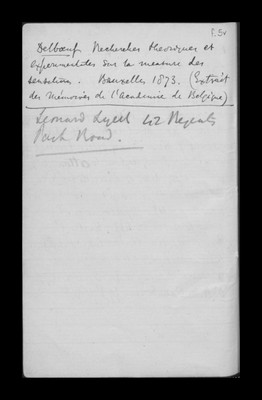 P. 34
Delboeuf Recherches théoriques et
expérimentales sur la mesure des
sensations. Bruxelles 1873. (Extrait
des Mémoires de l'académie de Belgique)
Leonard Lyell 42 Regents
Park Road.